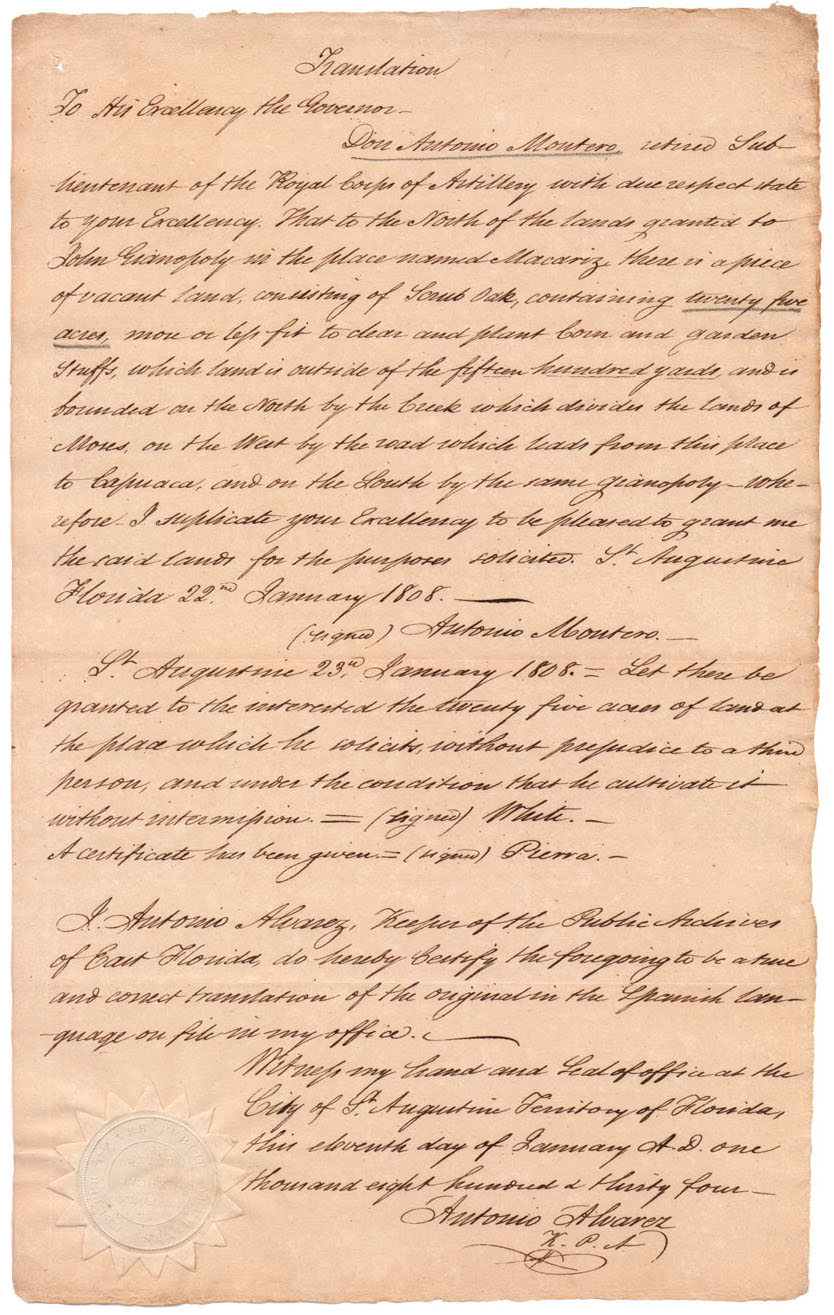 Translation
To His Excellency the Governor—
Don Antonio Montero, retired Sub-
lieutenant of the Royal Corps of Artillery with due respect state
to your Excellency. That to the North of the lands granted to
John Gianopoly in the place named Macariz, there is a piece
of vacant land, consisting of Scrub Oak, containing twenty five
acres, more or less fit to clear and plant Corn and garden
stuffs, which land is outside of the fifteen hundred yards, and is
bounded on the North by the Creek which divides the lands of
Moses, on the West by the road which leads from this place
to Capuaca, and on the South by the same Gianopoly— whe-
refore— I suplicate your Excellency to be pleased to grant me
the said lands for the purposes solicited. St. Augustine
Florida 22nd. January 1808.—
(signed) Antonio Montero.—
St. Augustine 23rd. January 1808.= Let there be
granted to the interested the twenty five acres of land at
the place which he solicits, without prejudice to a third
person, and under the condition that he cultivate it
without intermission. = (signed) White.—
A certificate has been given.= (signed) Pierra.—
I. Antonio Alvarez, Keeper of the Public Archives
of East Florida, do hereby Certify the foregoing to be a true
and correct translation of the original in the Spanish lan-
-guage on file in my office.
Witness my hand and Seal of office at the
City of St. Augustine Territory of Florida,
this eleventh day of January A.D. one
thousand eight hundred & thirty four—
Antonio Alvarez
K. P. A